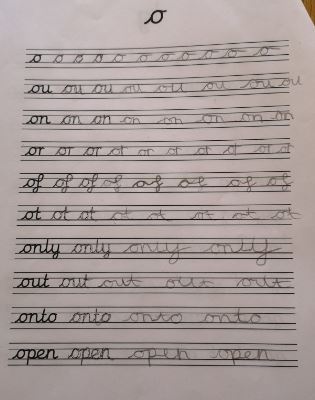 o
o o o o o o o o o o o
ou ou ou ou ou ou ou ou
on on on on on on on on
or or or or or or or or or
of of of of of of of of
ot ot ot ot ot ot ot ot
only only only only
out out out out out
onto onto onto onto
open open open open